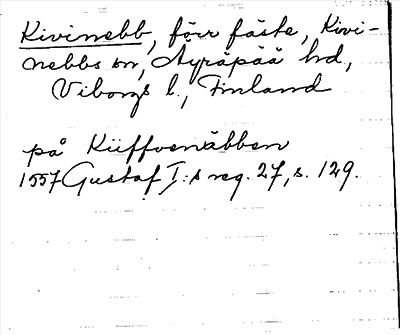 Kivinebb, förr fäste, Kivi-
nebbs sn, Äyräpää hd,
Viborgs l., Finland
på Kiiffvenäbben
1557 Gustaf I:s reg. 27, s. 129.